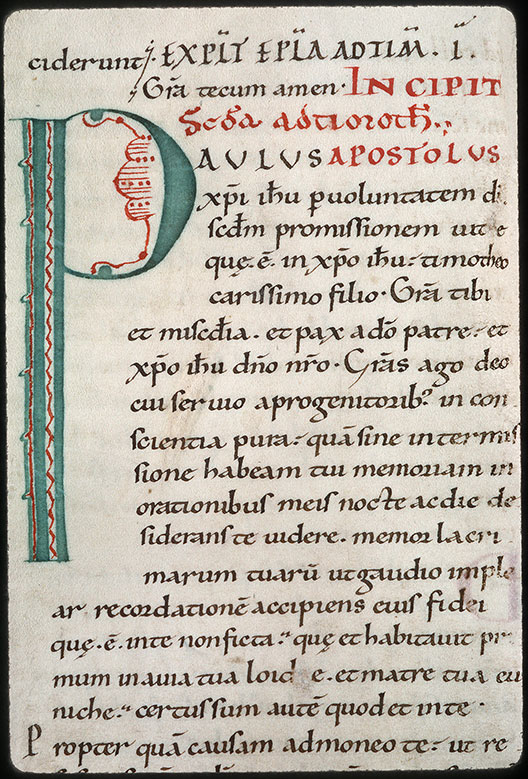 ciderunt·; EXPLT EPLA AD TIM̅. I.
Gr̅a tecum amen· INCIPIT
SCD̅A AD TIOMOTH̅·;
PAULUS APOSTOLUS
xp̅i ih̅u p uoluntatem di̅
scd̅m promissionem uite
quę·ē· in xp̅o ih̅u· timotheo
carissimo filio· Gr̅a tibi
et misc̅dia· et pax a do̅ patre· et
xp̅o ih̅u dn̅o nr̅o· Gra̅s ago deo
cui seruio aprogenitorib; in con
scientia pura· qua̅ sine intermis
sione habeam tui memoriam in
orationibus meis nocte ac die de
siderans te uidere· memor lacri
marum tuaru̅ ut gaudio imple
ar recordatione̅ accipiens eius fidei
quę·ē· in te non ficta· quę et habitauit pri
mum in auia tua loid e· et matre tua eu
niche· certus sum aute̅ quod et in te·
Propter qua̅ causam admoneo te· ut re